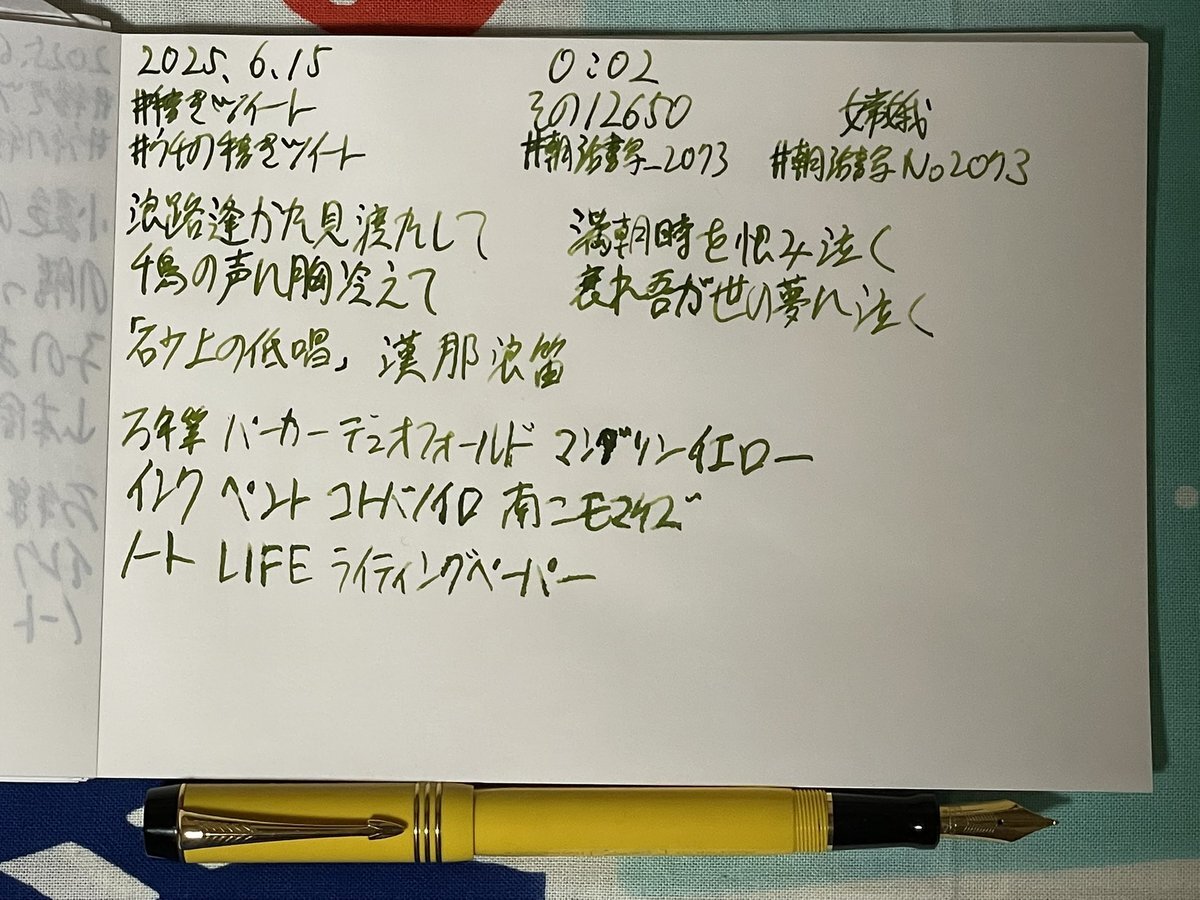 2025.6.15 0:02
#手書きツイート その12650 嫦娥
#うちの手書きツイート #朝活書写_2073 #朝活書写No2073
浪路逢かた見渡たして 満潮時を恨み泣く
千鳥の声に胸冷えて 哀れ吾が世の夢に泣く
「砂上の低唱」 漢那浪笛
万年筆 パーカー デュオフォールド マンダリンイエロー
インク ペント コトバノイロ 南ニモマケズ
ノート LIFE ライティングペーパー
2025.6
小
の
山本
万年筆
インク
ノート